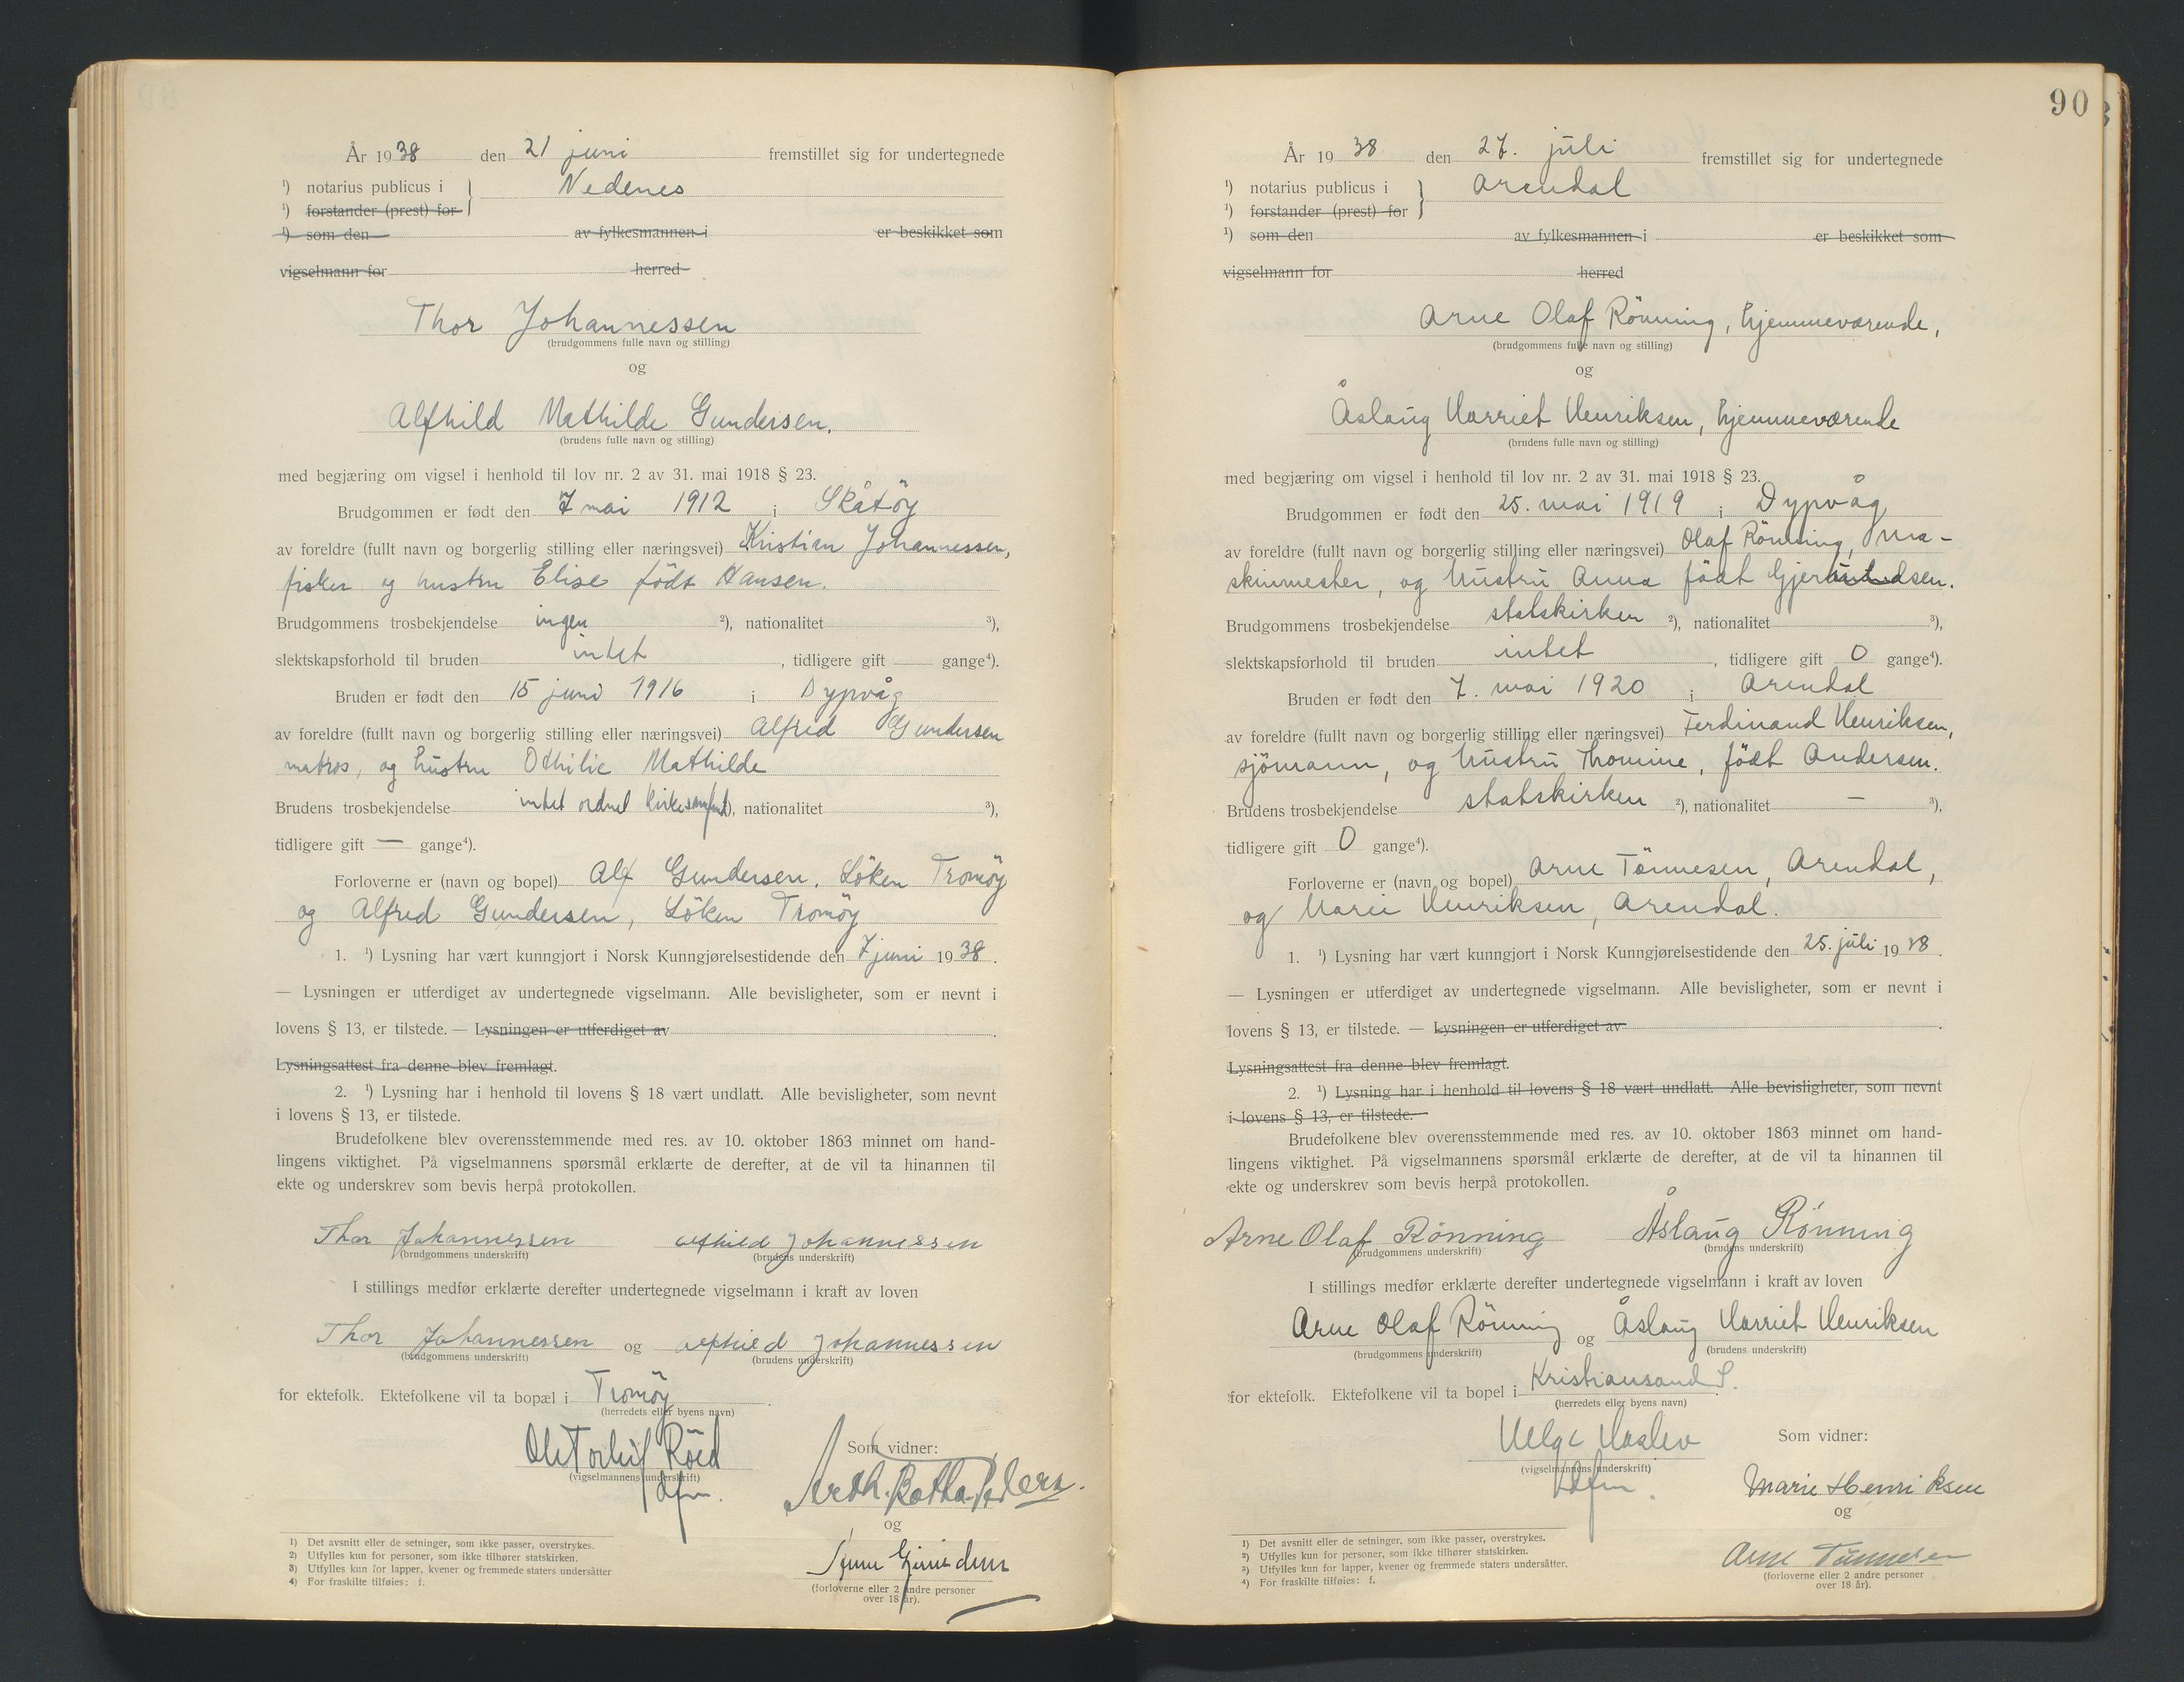 År 1938 den 21 juni fremstillet sig for undertegnede
¹) notarius publicus i } Nedenes
¹) forstander (prest) for
¹) som den av fylkesmannen i er beskikket som
vigselmann for herred
Thor Johannessen
(brudgommens fulle navn og stilling)
og
Alfhild Mathilde Gundersen.
(brudens fulle navn og stilling)
med begjæring om vigsel i henhold til lov nr. 2 av 31. mai 1918 § 23.
Brudgommen er født den 7 mai 1912 i Skåtöy
av foreldre (fullt navn og borgerlig stilling eller næringsvei) Kristian Johannessen,
fisker og hustru Elise födt Hansen.
Brudgommens trosbekjendelse ingen ²), nationalitet ³),
slektskapsforhold til bruden intet, tidligere gift — gange⁴).
Bruden er født den 15 juni 1916 i Dypvåg
av foreldre (fullt navn og borgerlig stilling eller næringsvei) Alfred Gundersen
matros, og hustru Othilie Mathilde
Brudens trosbekjendelse intet ordnet kirkesamfund ²), nationalitet ³),
tidligere gift — gange⁴).
Forloverne er (navn og bopel) Alf Gundersen. Löken Tromöy
og Alfred Gundersen, Löken Tromöy
1. ¹) Lysning har vært kunngjort i Norsk Kunngjørelsestidende den 7 juni 1938.
— Lysningen er utferdiget av undertegnede vigselmann. Alle bevisligheter, som er nevnt i
lovens § 13, er tilstede. — Lysningen er utferdiget av .
Lysningsattest fra denne blev fremlagt.
2. ¹) Lysning har i henhold til lovens § 18 vært undlatt. Alle bevisligheter, som nevnt
i lovens § 13, er tilstede.
Brudefolkene blev overensstemmende med res. av 10. oktober 1863 minnet om hand-
lingens viktighet. På vigselmannens spørsmål erklærte de derefter, at de vil ta hinannen til
ekte og underskrev som bevis herpå protokollen.
Thor Johannessen Alfhild Johannessen
(brudgommens underskrift) (brudens underskrift)
I stillings medfør erklærte derefter undertegnede vigselmann i kraft av loven
Thor Johannessen og Alfhild Johannessen
(brudgommens underskrift) (brudens underskrift)
for ektefolk. Ektefolkene vil ta bopæl i Tromöy.
(herredets eller byens navn)
Ole Torleif Röed
(vigselmannens underskrift)
dfm.
Som vidner:
Arth.
og
(forloverne eller 2 andre personer
over 18 år).
1) Det avsnitt eller de setninger, som ikke passer, overstrykes.
2) Utfylles kun for personer, som ikke tilhører statskirken.
3) Utfylles kun for lapper, kvener og fremmede staters undersåtter
4) For fraskilte tilføies: f.
90
År 1938 den 27. juli fremstillet sig for undertegnede
¹) notarius publicus i } Arendal
¹) forstander (prest) for
¹) som den av fylkesmannen i er beskikket som
vigselmann for herred
Arne Olaf Rönning, hjemmeværende,
(brudgommens fulle navn og stilling)
og
Åslaug Harriet Henriksen, hjemmeværende
(brudens fulle navn og stilling)
med begjæring om vigsel i henhold til lov nr. 2 av 31. mai 1918 § 23.
Brudgommen er født den 25. mai 1919 i Dypvåg
av foreldre (fullt navn og borgerlig stilling eller næringsvei) Olaf Rönning, ma-
skinmester, og hustru Anna födt
Brudgommens trosbekjendelse statskirken ²), nationalitet ³),
slektskapsforhold til bruden intet, tidligere gift 0 gange⁴).
Bruden er født den 7. mai 1920 i Arendal
av foreldre (fullt navn og borgerlig stilling eller næringsvei) Ferdinand Henriksen,
sjömann, og hustru Thomine, födt Andersen.
Brudens trosbekjendelse statskirken ²), nationalitet — ³),
tidligere gift 0 gange⁴).
Forloverne er (navn og bopel) Arne Tönnesen, Arendal,
og Marie Henriksen, Arendal.
1. ¹) Lysning har vært kunngjort i Norsk Kunngjørelsestidende den 25. juli 1938.
— Lysningen er utferdiget av undertegnede vigselmann. Alle bevisligheter, som er nevnt i
lovens § 13, er tilstede. — Lysningen er utferdiget av .
Lysningsattest fra denne blev fremlagt.
2. ¹) Lysning har i henhold til lovens § 18 vært undlatt. Alle bevisligheter, som nevnt
i lovens § 13, er tilstede.
Brudefolkene blev overensstemmende med res. av 10. oktober 1863 minnet om hand-
lingens viktighet. På vigselmannens spørsmål erklærte de derefter, at de vil ta hinannen til
ekte og underskrev som bevis herpå protokollen.
Arne Olaf Rönning Åslaug Rönning
(brudgommens underskrift) (brudens underskrift)
I stillings medfør erklærte derefter undertegnede vigselmann i kraft av loven
Arne Olaf Rönning og Åslaug Harriet Henriksen
(brudgommens underskrift) (brudens underskrift)
for ektefolk. Ektefolkene vil ta bopel i Kristiansand S.
(herredets eller byens navn)
Helge Haslev
(vigselmannens underskrift)
dfm.
Som vidner:
Marie Henriksen
og
Arne Tönnesen
(forloverne eller 2 andre personer
over 18 år).
1) Det avsnitt eller de setninger, som ikke passer, overstrykes.
2) Utfylles kun for personer, som ikke tilhører statskirken.
3) Utfylles kun for lapper, kvener og fremmede staters undersåtter.
4) For fraskilte tilføies: f.